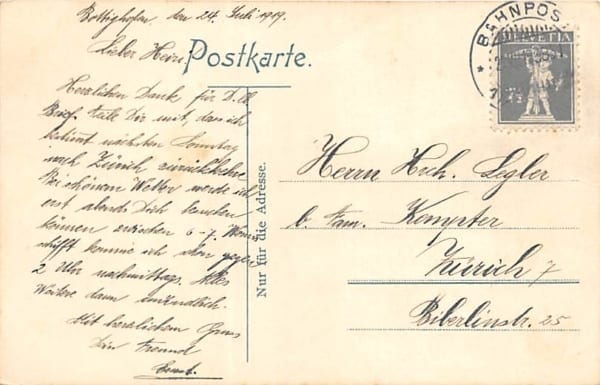 Bottighofen den 24. Juli 1919.
Lieber Heiri
Postkarte.
Herzlichen Dank für D. lb.
Brief. teile Dir mit, dass ich
bestimmt nächsten Sonntag
nach Zürich zurückkehre
Bei schönem Wetter werde ich
erst abends Dich
können zwischen 6-7. Wenn
ich schon gegen
2 Uhr nachmittags. Alles
Weitere dann mündlich.
Mit herzlichem Gruss
Dein Freund
Ernst.
Nur für die Adresse.
BAHNPOS
HELVETIA
7½
Herrn Hch. Legler
b. Fam. Kempter
Zürich 7
Biberlinstr. 25